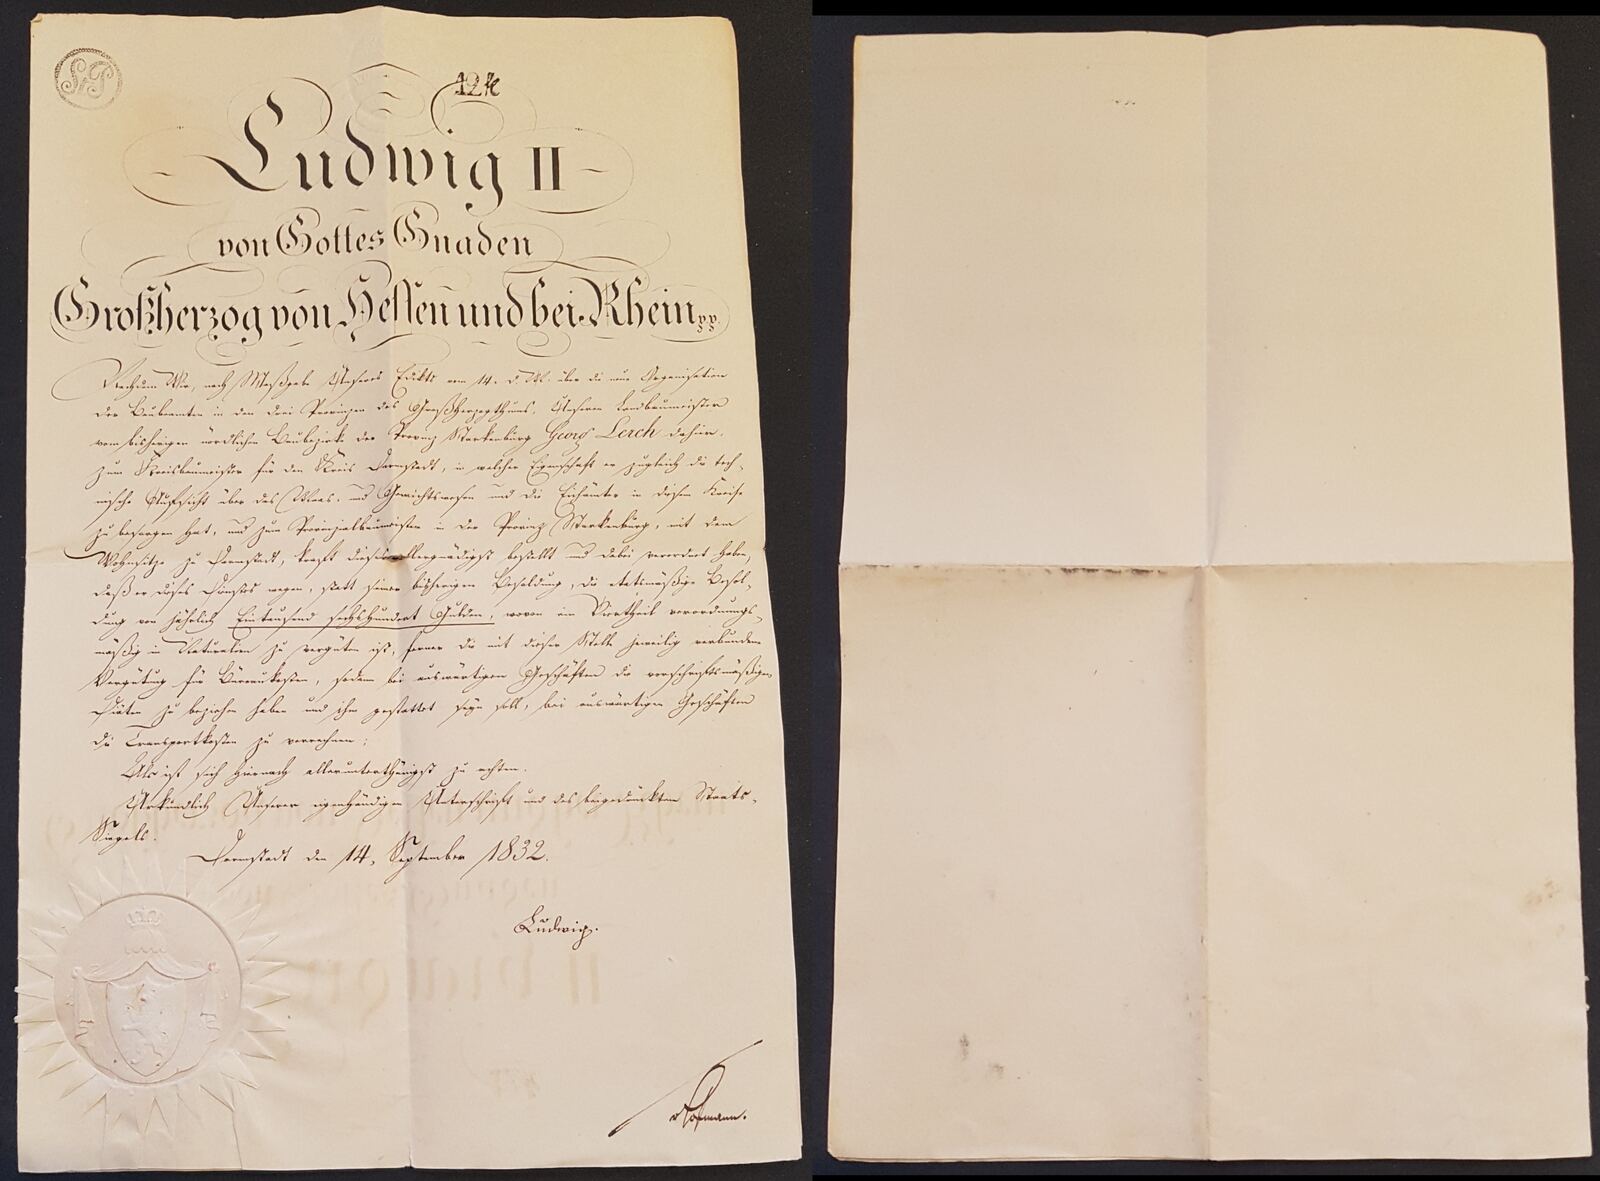 12 k
Ludwig II
von Gottes Gnaden
Großherzog von Hessen und bei Rhein pp.
Nachdem Wir, nach Maßgabe Unseres Edikts vom 14. d. M. über die neue Organisation
der Baubeamten in den drei Provinzen des Großherzogthums, Unseren Landbaumeister
vom bisherigen nördlichen Baubezirk der Provinz Starkenburg Georg Lerch dahier,
zum Kreisbaumeister für den Kreis Darmstadt, in welcher Eigenschaft er zugleich die tech-
nische Aufsicht über das Maas- und Gewichtswesen und die Eichämter in diesem Kreise
zu besorgen hat, und zum Provinzialbaumeister in der Provinz Starkenburg, mit dem
Wohnsitze zu Darmstadt, kraft dieses allergnädigst bestellt und dabei verordnet haben,
daß er dieses Dienstes wegen, statt seiner bisherigen Besoldung, die etatsmäßige Besol-
dung von jährlich Eintausend sechshundert Gulden, wovon ein Viertheil verordnungs-
mäßig in Naturalien zu vergüten ist, ferner die mit dieser Stelle jeweilig verbundene
Vergütung für Büreaukosten, sodann bei auswärtigen Geschäften die vorschriftsmäßigen
Diäten zu beziehen haben und ihm gestattet seyn soll, bei auswärtigen Geschäften
die Transportkosten zu verrechnen;
Als ist sich hiernach allerunterthänigst zu achten.
Urkundlich Unserer eigenhändigen Unterschrift und des beigedruckten Staats-
Siegels.
Darmstadt den 14. September 1832.
Ludwig.
v Hofmann.